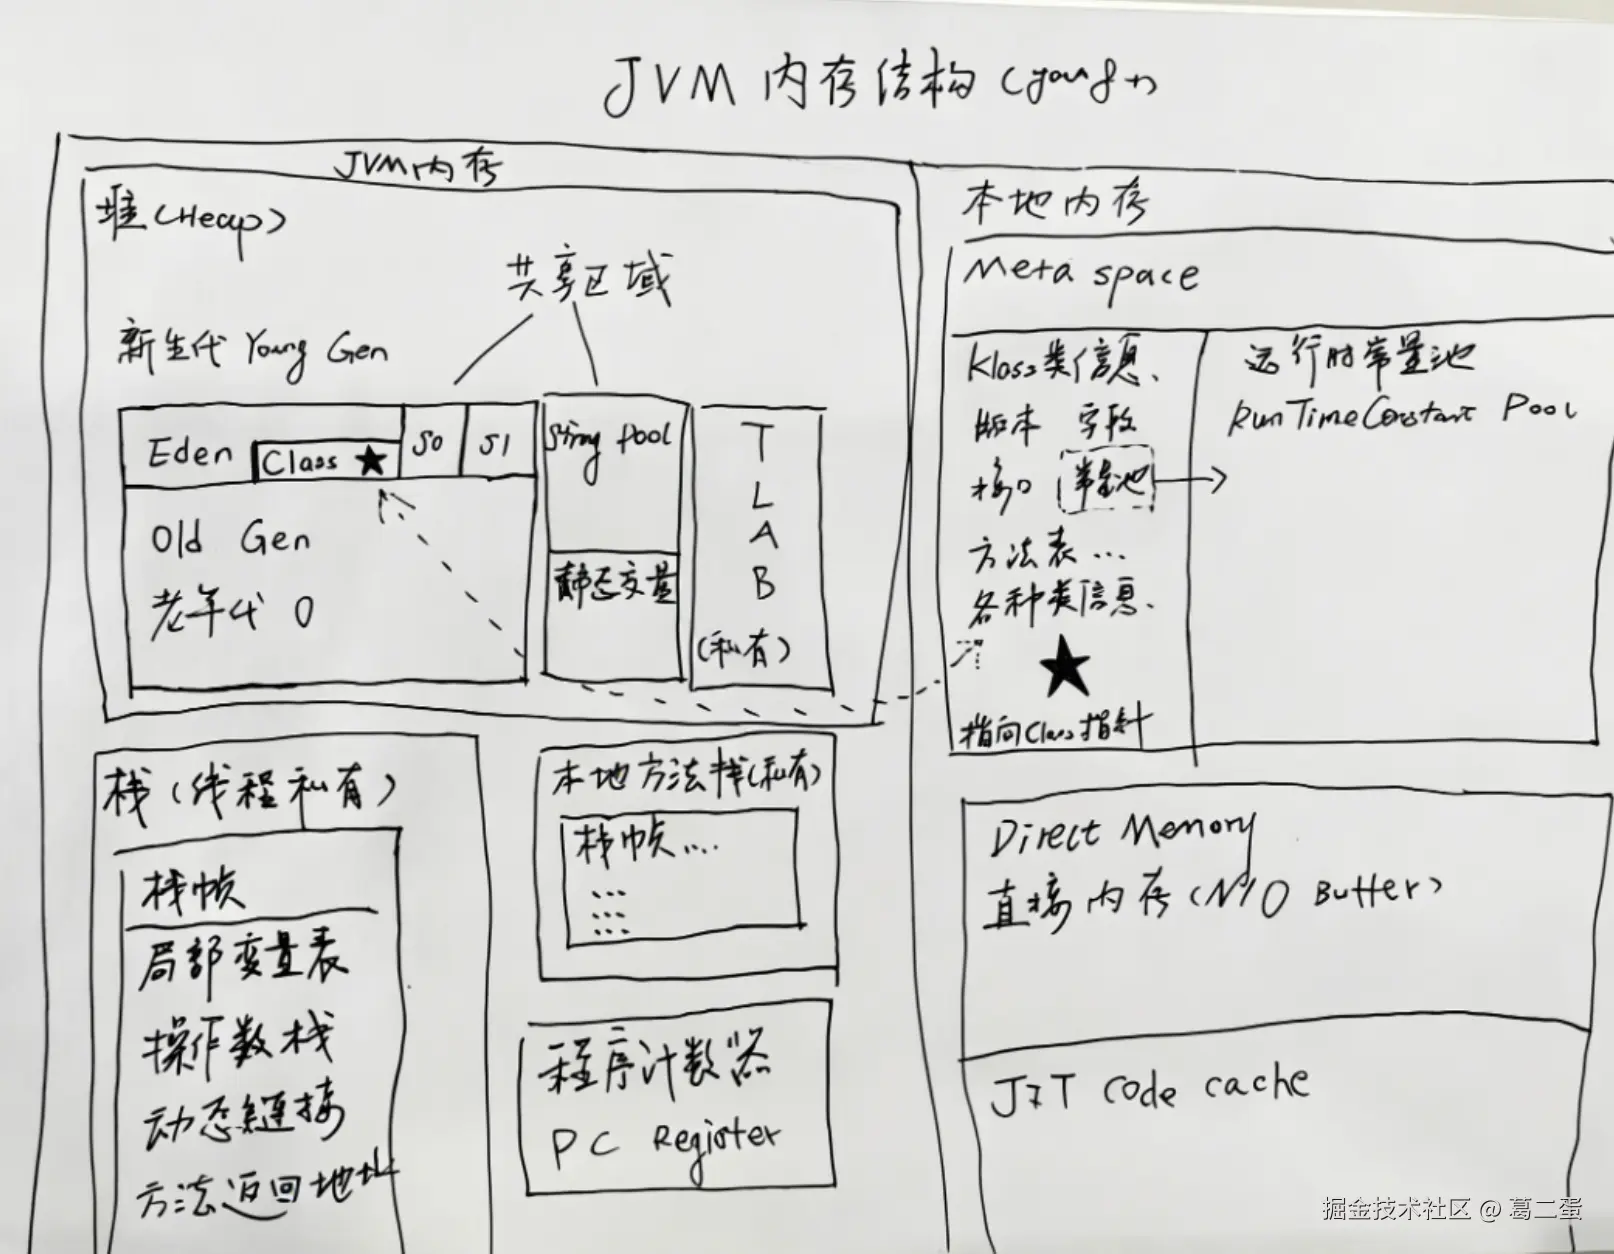 JVM 内存结构 (java8+)
JVM内存
堆(Heap)
共享区域
新生代 Young Gen
Eden
Class ★
S0
S1
String Pool
静态变量
T
L
A
B
(私有)
Old Gen
老年代 O
栈(线程私有)
栈帧
局部变量表
操作数栈
动态链接
方法返回地址
本地方法栈(私有)
栈帧...
...
...
...
程序计数器
PC Register
本地内存
Meta space
Klass类信息、
版本 字段
接口 常量池
方法表...
各种类信息、
★
指向Class指针
运行时常量池
RunTimeConstant Pool
Direct Memory
直接内存(NIO Buffer)
JIT code cache
掘金技术社区 @ 葛二蛋